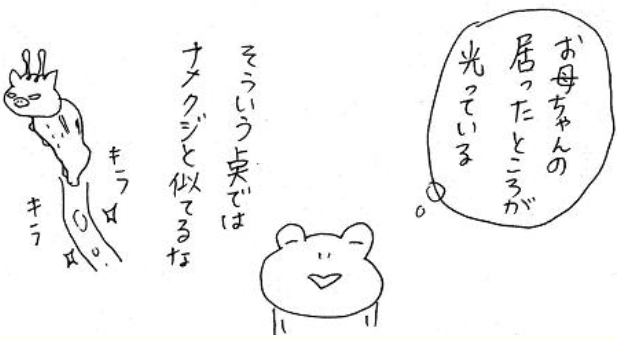 お母ちゃんの
居ったところが
光っている
そういう点では
ナメクジと似てるな
キラ
キラ